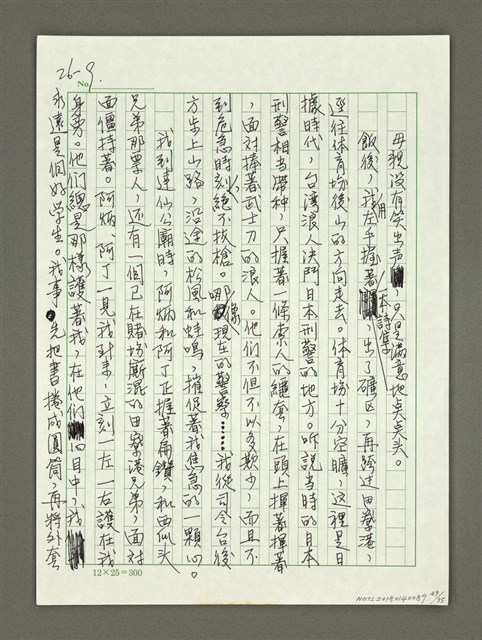 26-9.
No.
母親没有笑出声，只是满意地点点头。
飯後，我用左手握著一本詩集，出了礦区，再跨过田寮港，
逕往体育場後山的方向走去。体育場十分空曠，这裡是日
據時代，台湾浪人決鬥日本刑警的地方。听說当時的日本
刑警相当帶种，只握著一條索人的繩套，在頭上揮著揮著
，面对捧著武士刀的浪人。他们不但不以多欺少，而且不
到危急時刻絕不拔槍。哪像現在的警察……我從司令台後
方步上山路，沿途的松風和蛙鳴，摧促著我焦急的一颗心。
我到達仙公廟時，阿炳和阿丁正握著扁鑽，和西仙头
兄弟那票人，还有一個已在賭場廝混的田寮港兄弟，面对
面僵持著。阿炳、阿丁一見我到來，立刻一左一右護在我
身旁。他们總是那樣護著我，在他们心目中，我
永遠是個好学生。我事先把書捲成圓筒，再将外套
12×25=300
NMTL20190140089 49/55